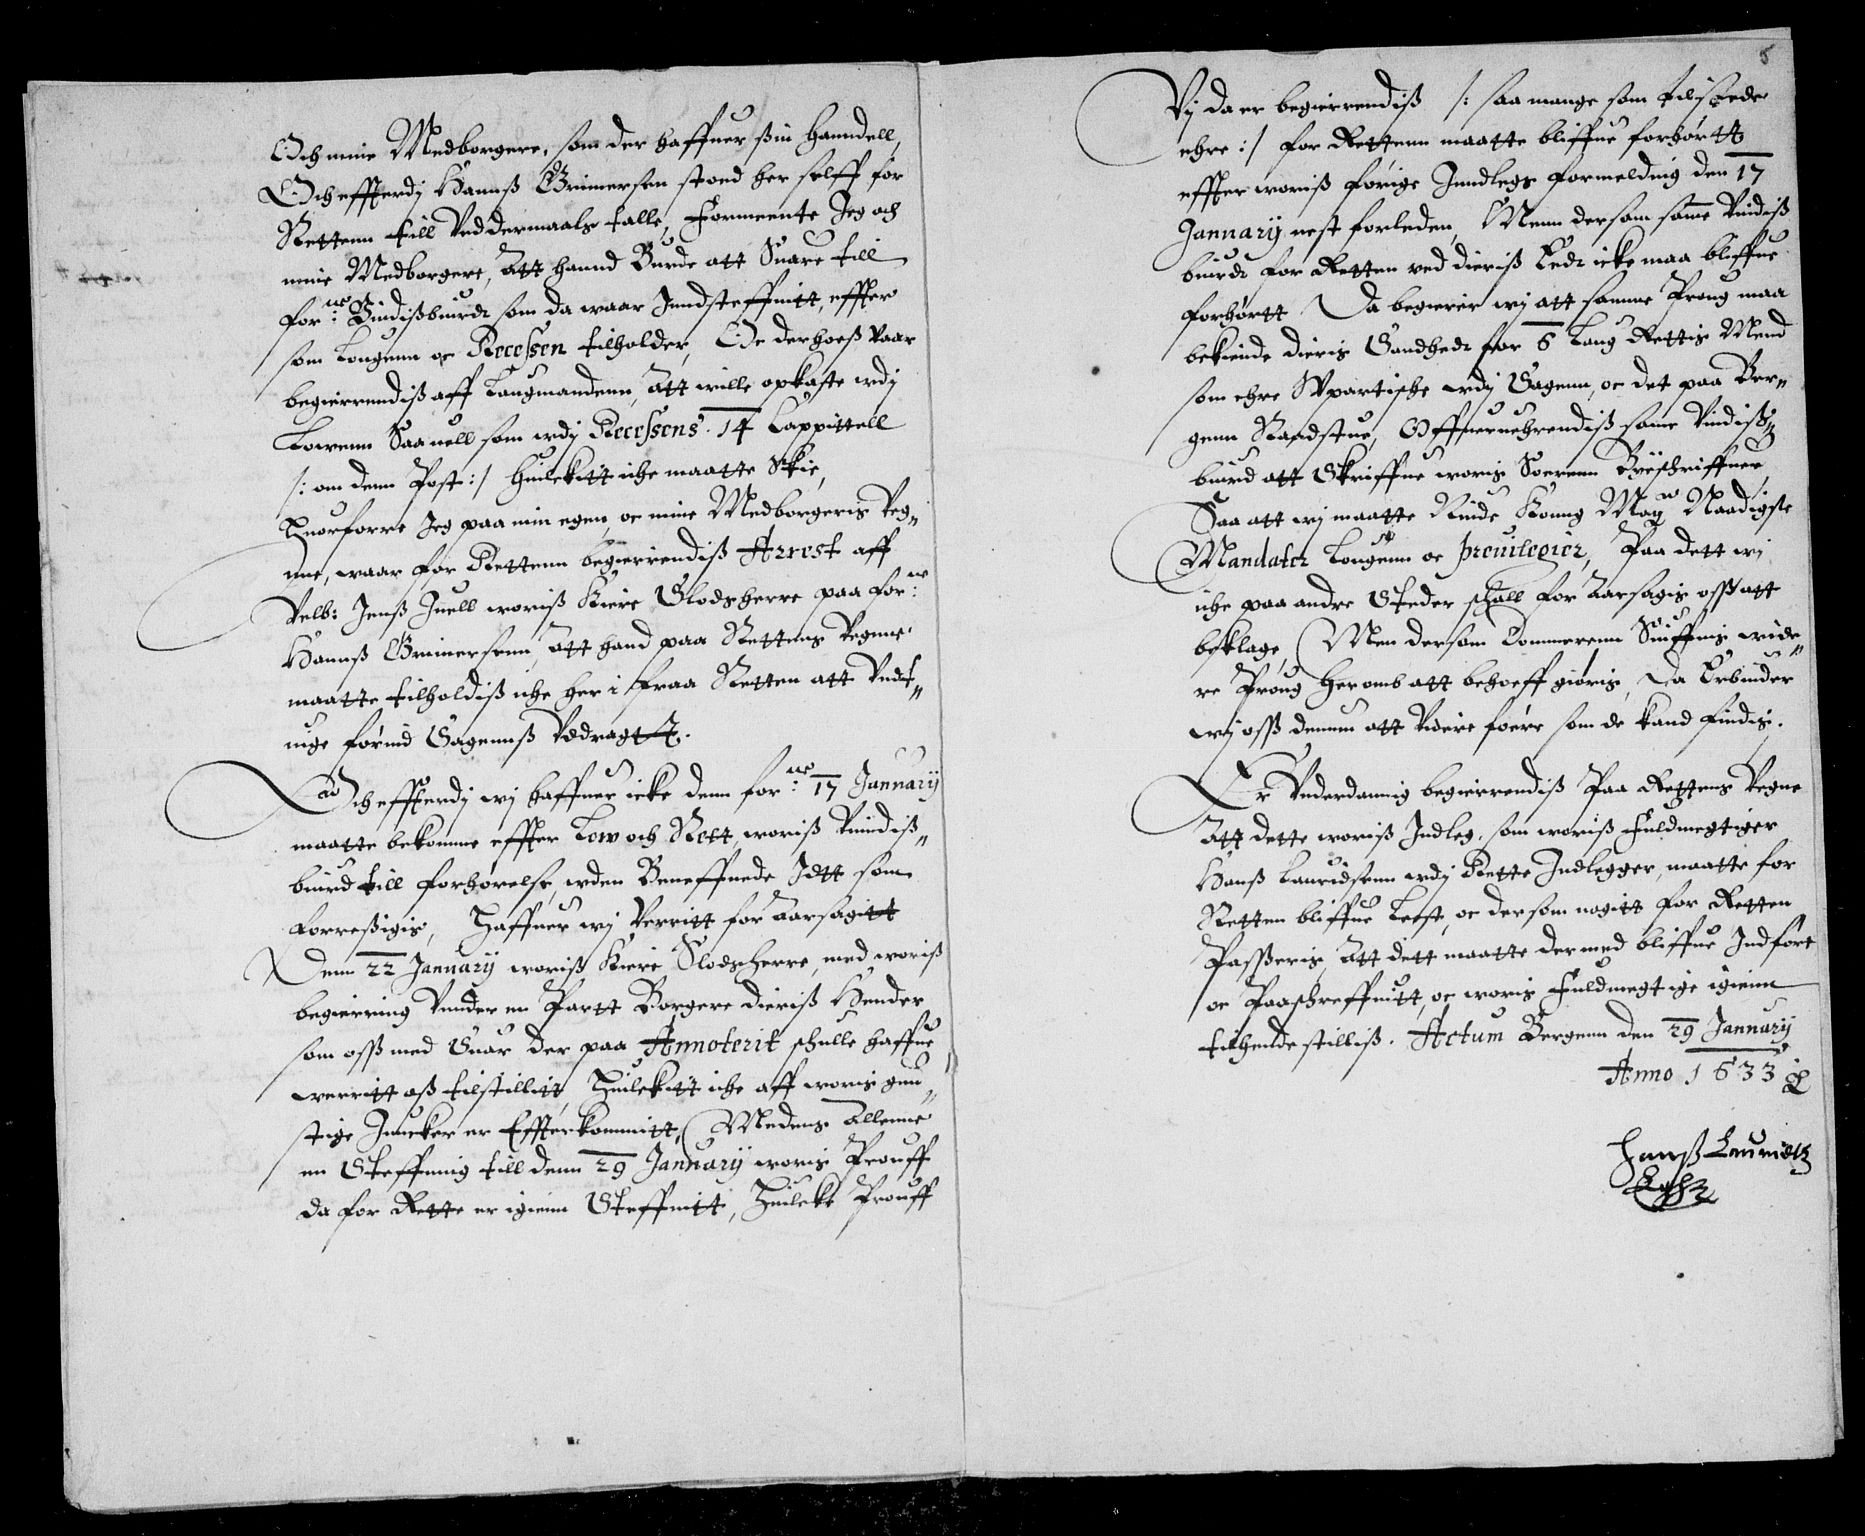 Och mine Medborgere, som der haffuer sin handell,
Och effterdj Hannß Grimersen stoed her selff for
Rettenn till Veddermaals talle, Formeente Jeg och
mine Medborgere, Att hannd Burde att Suare till
for:ne Vindißbiurdt som da waar Inndsteffnitt, effter
som Lougenn oc Recessen tilholder, Oc derhoeß vaar
begierrendiß aff Laugmandenn, Att wille opkaste wdj
Lowenn Saa uell som wdj Recessens 14 Cappittell
/: om denn Post :/ Huilckitt iche maatte Skie,
Huorforre Jeg paa min egen, oc mine Medborgeris Veg„
nne, waar for Rettenn begierrendiß Arrest aff
Velb: Jenß Juell woriß Kiere Slodsherre paa for:ne
Hannß Grimersenn, Att hand paa Rettens Vegnne
maatte tilholdiß iche her i fraa Retten att Vndt„
uige førind Sagennß Vddragtt.
Och effterdj wj haffuer icke denn for:ne 17 January
maatte bekomme effter Low och Rett, woriß Vindiß„
biurd till forhørelse, uden Beneffnede Jdtt som
forreßigis, Haffuer wj Verritt for Aarsagitt
Denn 22 January woriß Kiere Slodsherre, med woriß
begierring Vnnder en Partt Borgere dieriß Hender
som oss med Suar der paa Annoterit schulle haffue
werritt oß tilstillitt, Huilckitt iche aff woris gun„
stige Juncker er Effterkommitt, Medens Allenne
en Steffning till denn 29 January woris Prouff
da for Rette er igienn Steffnitt, Huilcke Prouff
5
Vj da er begierrendiß /: saa mange som tilstede
ehre :/ for Rettenn maatte bliffue forhørtt
effter woriß forige Inndlegs formelding den 17
January nest forleden, Menn dersom samme Vindiß
biurdt for Retten ved dieriß Eedt icke maa bliffue
forhørtt Da begierer wj att samme Proug maa
bekiende dieris Sandhedt for 6 Laug Rettis Mend
som ehre Vpartische wdj Sagenn, oc det paa Ber„
genn Raadstue, Offueruehrendiß samme Vindiß„
biurd att Skriffue woris Soerenn Byeschriffuer,
Saa att wj maatte Niude Konng Mayts Naadigste
Mandater Lougenn oc preuilegier, Paa dett wj
iche paa andre Steder schall for Aarsagis oss att
beklage, Men dersom Commerenn Siuffnis wide„
re Proug Her omb att behoeff giøris, Da Erbinder
wj oss dennum att Viderefoere som de kand findis.
Er Vnderdannig begierrendiß Paa Rettens Vegne
Att dette woriß Indleg, som woriß Fuldmegtiger
Hanß Lauridsenn wdj Rette Indlegger, maatte for
Retten bliffue Lest, oc dersom nogitt for Retten
Passeris, Att dett maatte der med bliffue Indført
oc Paaschreffuitt, oc woris Fuldmegtige igienn
tilhende stilliß. Actum Bergenn den 29 January
Anno 1633
Hanß Lauridtz